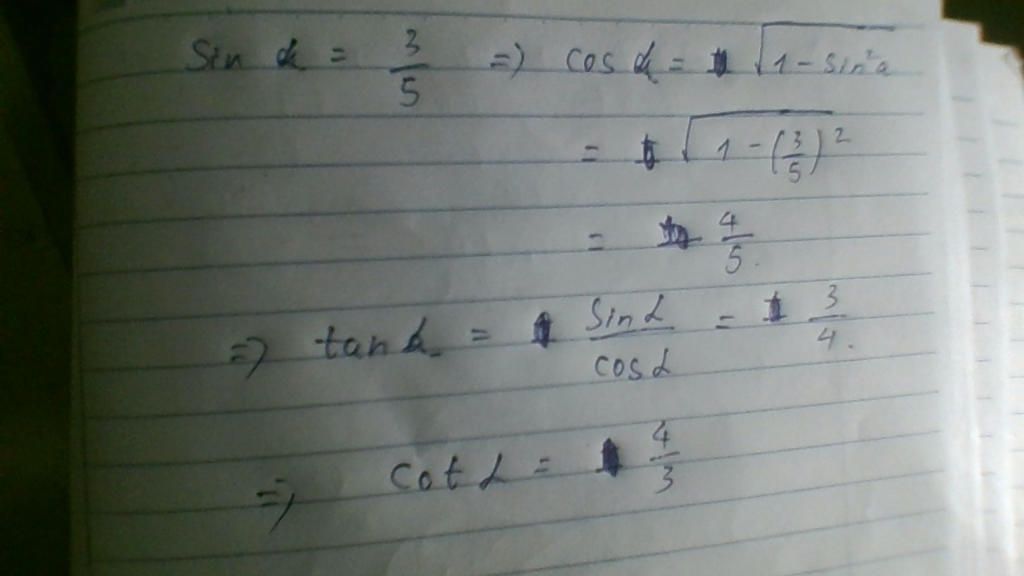 sin α = 3/5 => cos α = √(1 - sin²α)
= √(1 - (3/5)²)
= 4/5.
=> tan α = sin α / cos α = 3/4.
=> cot α = 4/3